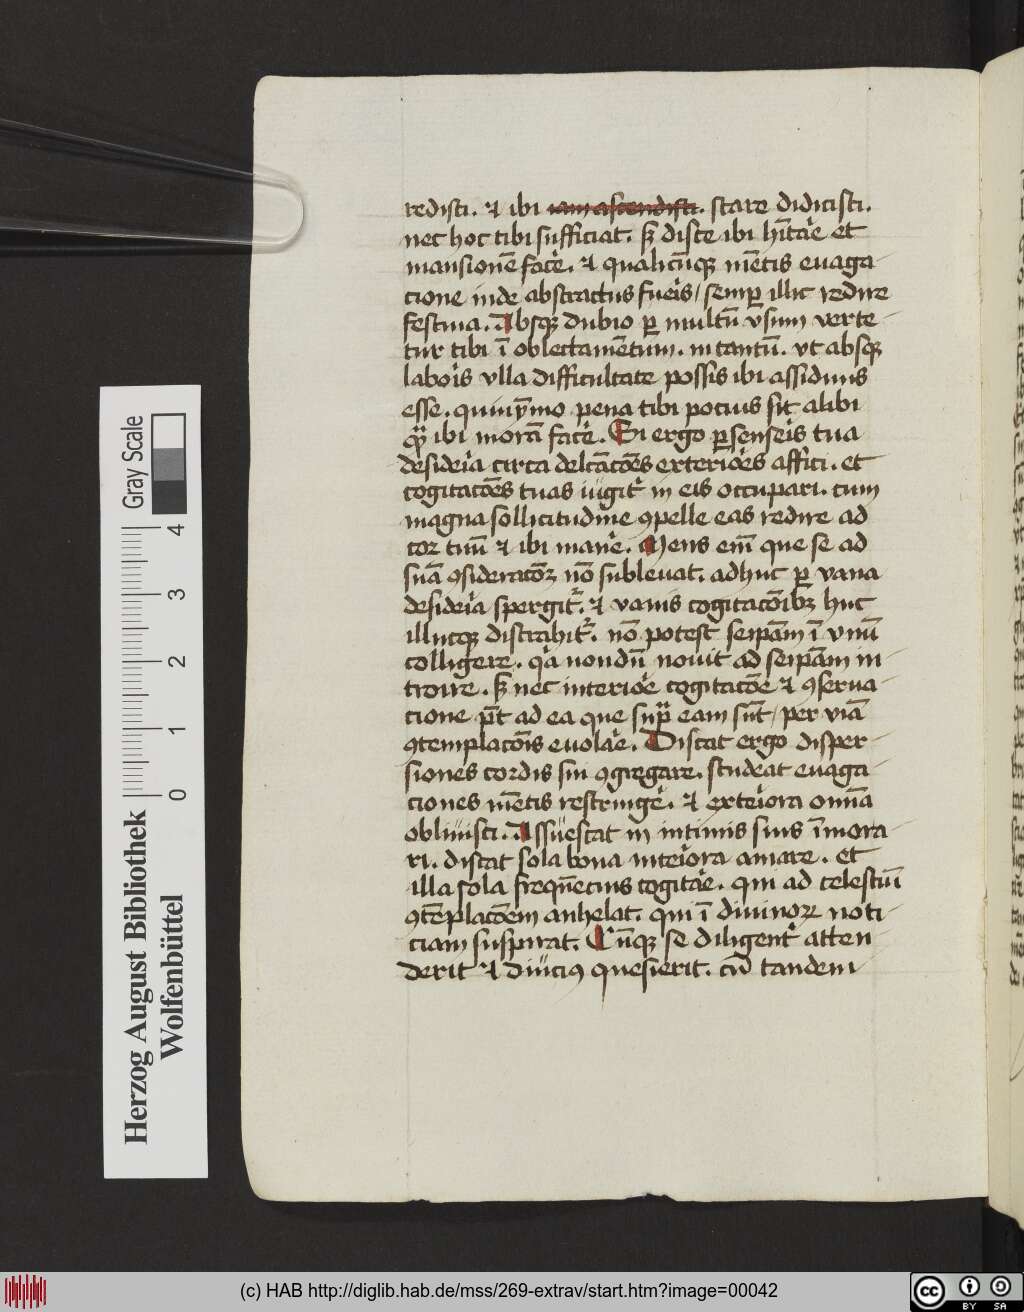 redisti. ⁊ ibi iam ascendisti. stare didicisti.
nec hoc tibi sufficiat. sꝫ disce ibi hītaꝛ̄e et
mansionē facꝛ̄e. ⁊ qualicūqꝫ mētis euaga-
cione inde abstractus fueꝛ̄is / semꝑ illic redire
festina. Absqꝫ dubio ꝑ multū vsum verte-
tur tibi ī oblectamētum. in tantū. vt absqꝫ
laboꝛ̄is vlla difficultate possis ibi assiduus
esse. quinymmo pena tibi pocius sit alibi
qꝫ̄ ibi morā facꝛ̄e. Si ergo ꝑsenseꝛ̄is tua
desideꝛ̄ia circa delcācōes exterioꝛ̄es affici. et
cogitacōes tuas iugitꝛ̄ in eis occupari. cum
magna sollicitudine ꝯpelle eas redire ad
cor tuū ⁊ ibi maneꝛ̄e. Mens em̄ que se ad
suā ꝯsideracōꝫ nō subleuat. adhuc ꝑ vana
desideꝛ̄ia spergitꝛ̄. ⁊ vanis cogitacōibꝫ huc
illucqꝫ distrahitꝛ̄. nō potest seipām ī vnū
colligere. qꝛ̄a nondū nouit ad seipām in-
troire. sꝫ nec interioꝛ̄e cogitacōe ⁊ ꝯserua-
cione pt̄ ad ea que supꝛ̄ eam sūt / per viā
ꝯtemplacōis euolaꝛ̄e. Discat ergo disper-
siones cordis sui ꝯgregare. studeat euaga-
ciones mētis restringeꝛ̄e. ⁊ exteꝛ̄iora omīa
obliuisci. Assuescat in intimis suis īmora-
ri. discat sola bona inteꝛ̄iora amare. et
illa sola freqūecius cogitaꝛ̄e. qui ad celestiū
ꝯtēplacōem anhelat. qui ī diuinoꝝ noti-
ciam suspirat. Cūqꝫ se diligentꝛ̄ atten
derit ⁊ diuciꝰ quesierit. cū tandem
Herzog August Bibliothek
Wolfenbüttel
0 1 2 3 4
Gray Scale
(c) HAB http://diglib.hab.de/mss/269-extrav/start.htm?image=00042
cc BY SA